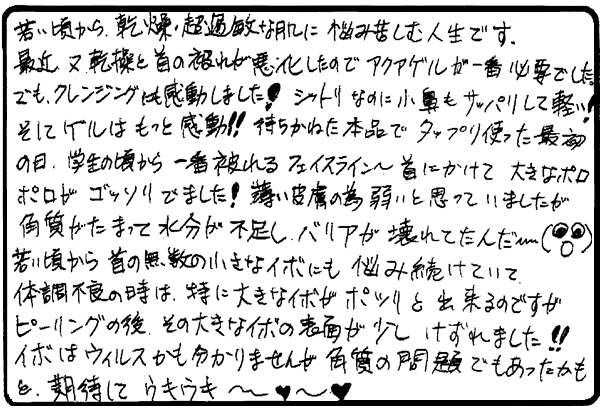 若い頃から、乾燥・超過敏な肌に悩み苦しむ人生です。
最近又乾燥と首の被れが悪化したのでアクアゲルが一番必要でした。
でも、クレンジングにも感動しました! シットリなのに小鼻もサッパリして軽い!
そしてゲルはもっと感動!! 待ちかねた本品でタップリ使った最初
の日、学生の頃から一番被れるフェイスライン〜首にかけて大きなポロ
ポロがゴッソリでました! 薄い皮膚の為弱いと思っていましたが
角質がたまって水分が不足し、バリアが壊れてたんだ〜
若い頃から首の無数の小さなイボにも悩み続けていて、
体調不良の時は、特に大きなイボがポツリと出来るのですが
ピーリングの後、その大きなイボの表面が少しけずれました!!
イボはウィルスかも分かりませんが角質の問題でもあったかも
と、期待してウキウキ〜♥〜♥